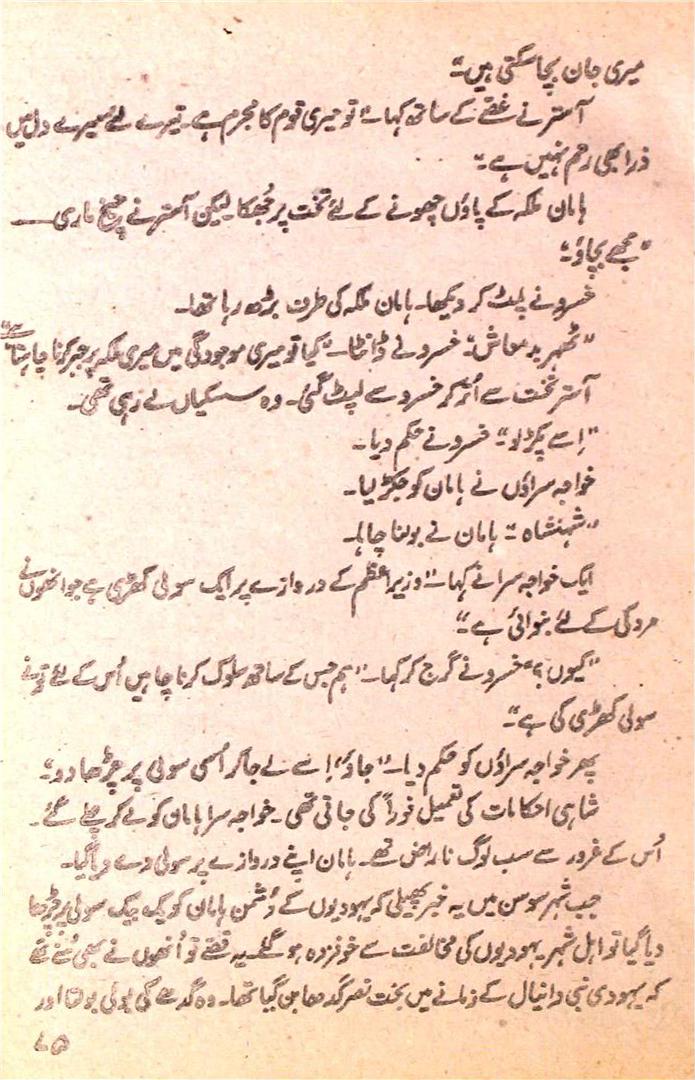 میری جان بچا سکتی ہیں۔"
آستر نے غصّے کے ساتھ کہا۔ "تو میری قوم کا مجرم ہے۔ تیرے لئے میرے دل میں
ذرا بھی رحم نہیں ہے۔"
ہامان ملکہ کے پاؤں چھونے کے لئے تخت پر جُھکا لیکن آستر نے چیخ ماری ــــ
"مجھے بچاؤ"۔
خسرو نے پلٹ کر دیکھا۔ ہامان ملکہ کی طرف بڑھ رہا تھا۔
"ٹھہر بدمعاش"۔ خسرو نے ڈانٹا۔ "کیا تو میری موجودگی میں میری ملکہ پر جبر کرنا چاہتا ہے"
آستر تخت سے اُتر کر خسرو سے لپٹ گئی۔ وہ سسکیاں لے رہی تھی۔
"اِسے پکڑ لو"۔ خسرو نے حکم دیا۔
خواجہ سراؤں نے ہامان کو جکڑ لیا۔
"شہنشاہ"۔ ہامان نے بولنا چاہا۔
ایک خواجہ سرا نے کہا۔ "وزیر اعظم کے دروازے پر ایک سولی کھڑی ہے جو انھوں نے
مردکی کے لئے بنوائی ہے۔"
"کیوں؟" خسرو نے گرج کر کہا۔ "ہم جس کے ساتھ سلوک کرنا چاہیں اُس کے لئے تو نے
سولی کھڑی کی ہے"۔
پھر خواجہ سراؤں کو حکم دیا۔ "جاؤ" اِسے لے جا کر اُسی سولی پر چڑھا دو"۔
شاہی احکامات کی تعمیل فوراً کی جاتی تھی۔ خواجہ سرا ہامان کو لے کر چلے گئے۔
اُس کے غرور سے سب لوگ ناراض تھے۔ ہامان اپنے دروازے پر سولی دے دیا گیا۔
جب شہر سوسن میں یہ خبر پھیلی کہ یہودیوں کے دُشمن ہامان کو یک بیک سولی پر چڑھا
دیا گیا تو اہل شہر یہودیوں کی مخالفت سے خوفزدہ ہو گئے۔ یہ قصّے تو اُنھوں نے بھی سُنے تھے
کہ یہودی نبی دانیال کے زمانے میں بخت نصر گدھا بن گیا تھا۔ وہ گدھے کی بولی بولتا اور
۷۵